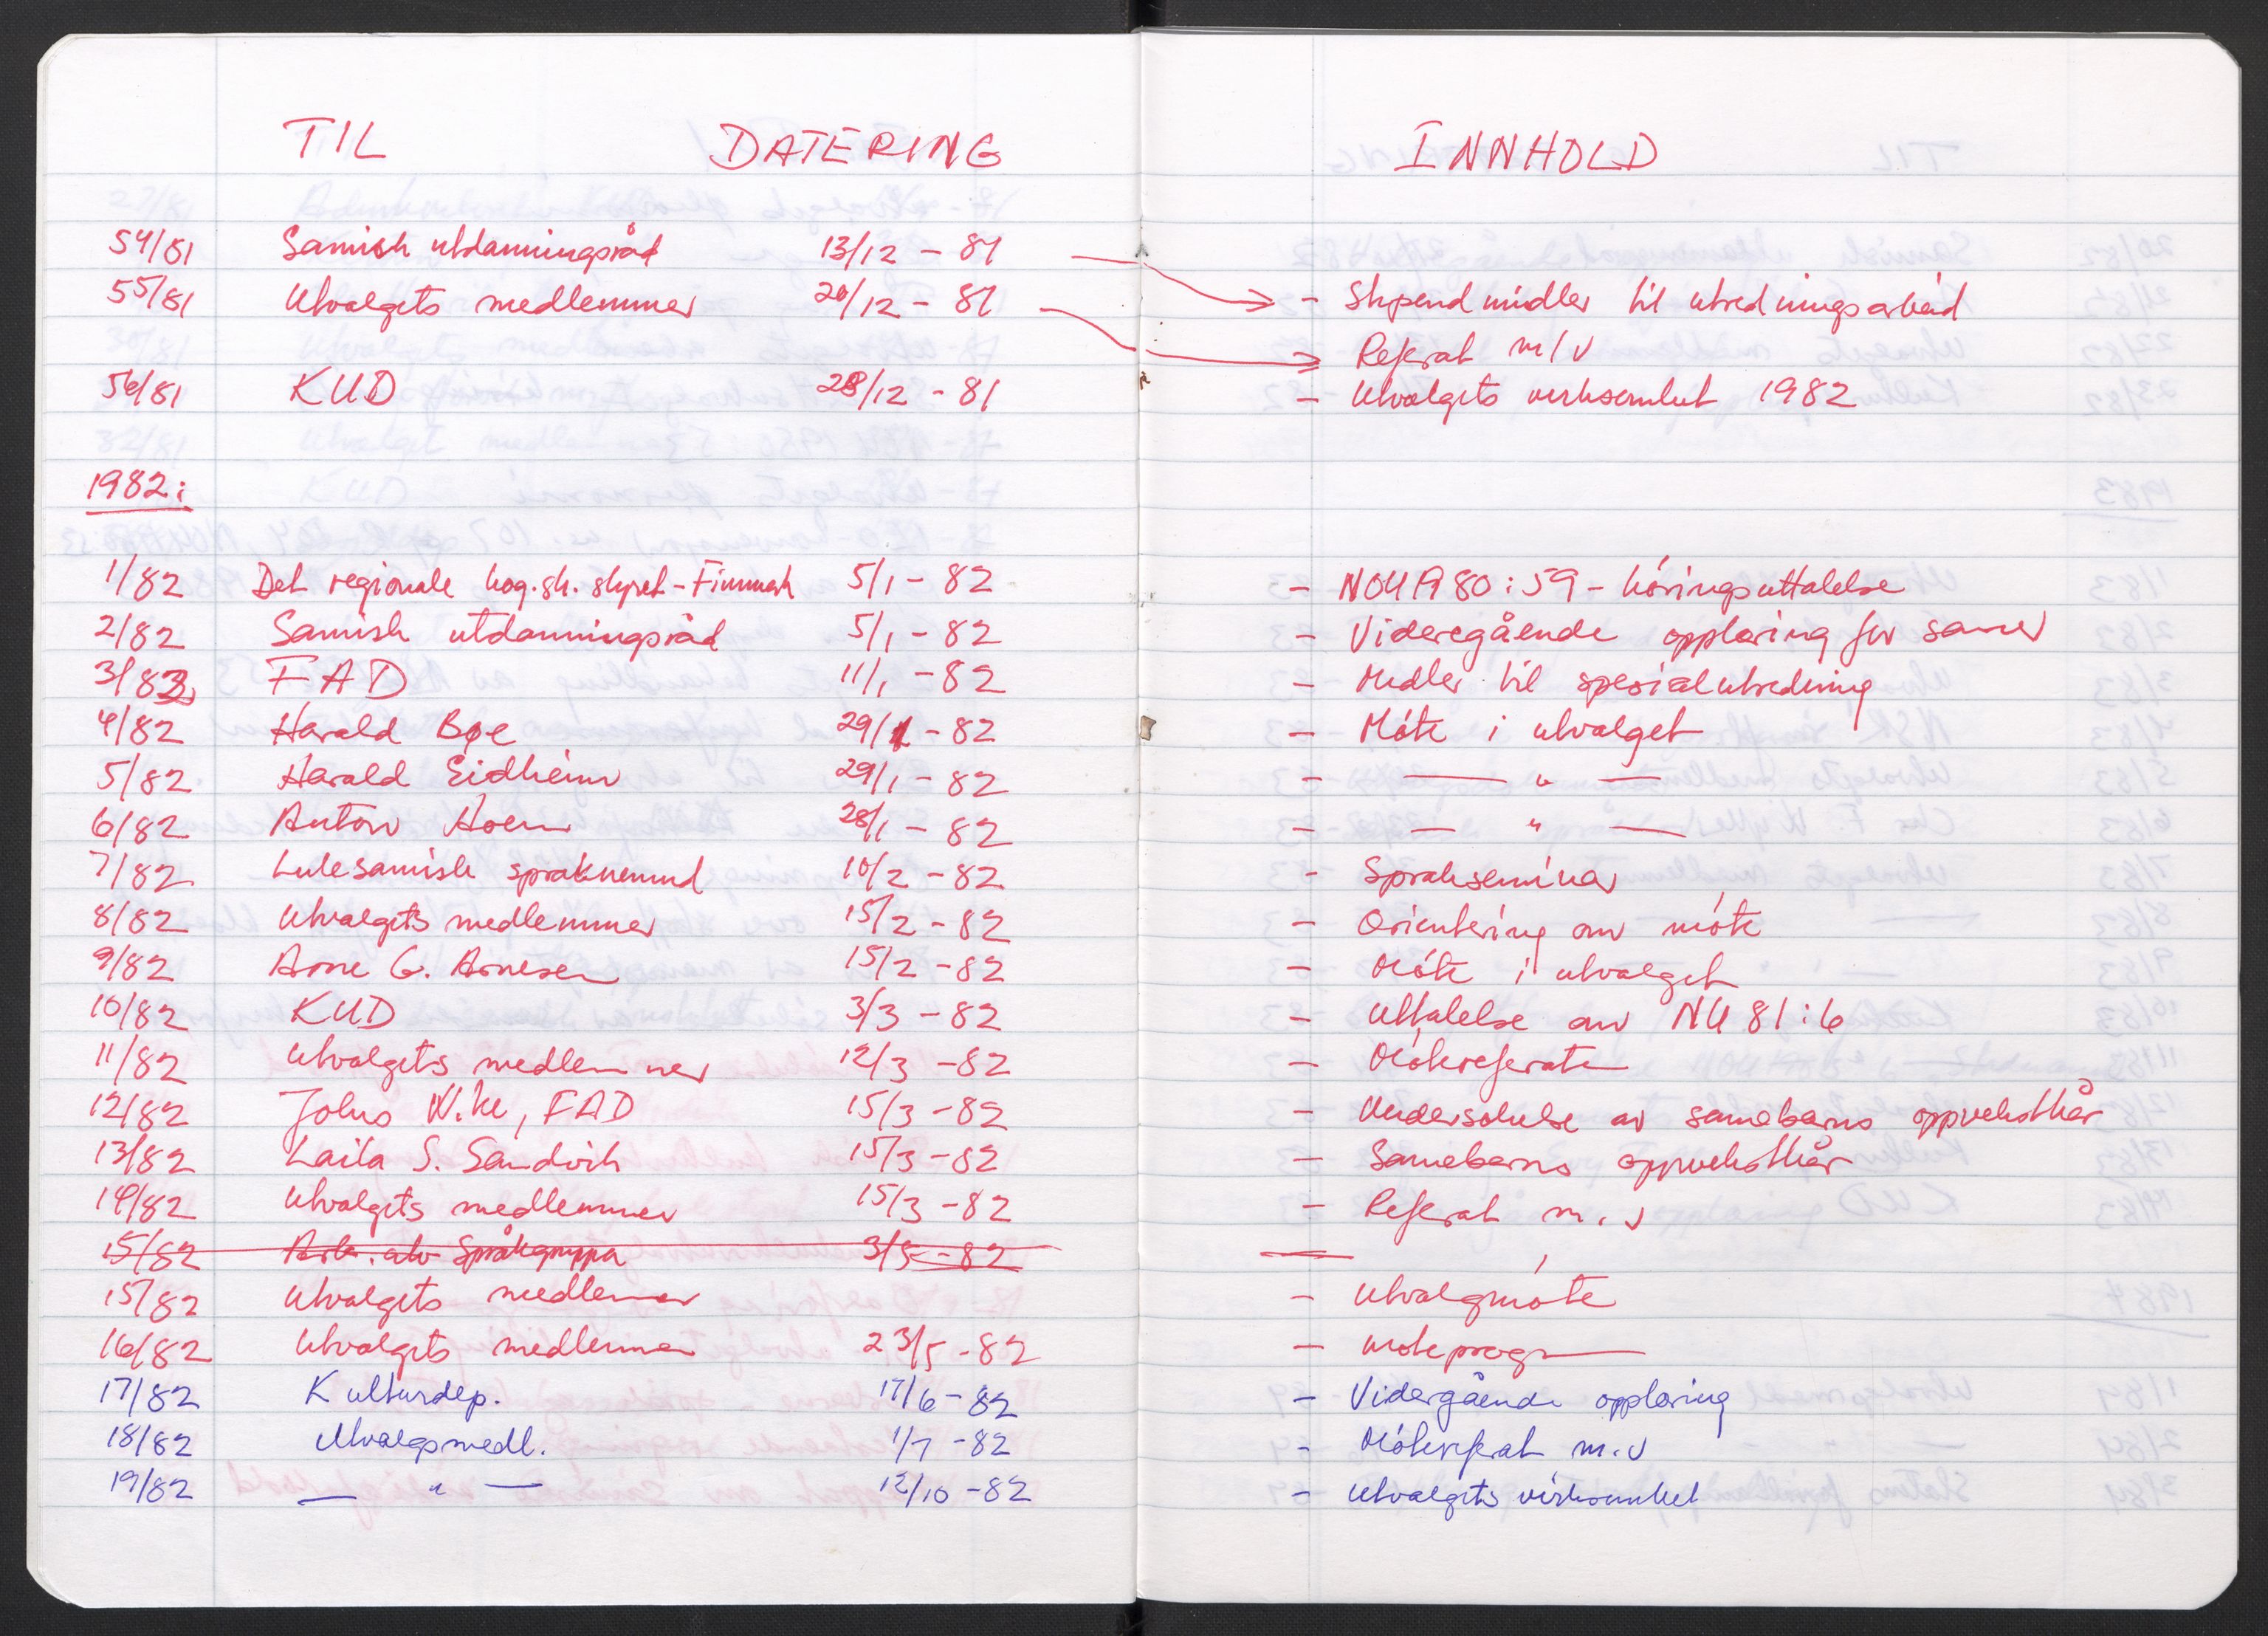 TIL DATERING INNHOLD
54/81 Samisk utdanningsråd 13/12 - 81 - Stipendmidler til utredningsarbeid
55/81 Utvalgets medlemmer 20/12 - 81 Referat m/v
56/81 KUD 28/12 - 81 - Utvalgets virksomhet 1982
1982:
1/82 Det regionale høg.sk. styret - Finnmark 5/1 - 82 - NOU 1980:59 - høringsuttalelse
2/82 Samisk utdanningsråd 5/1 - 82 - Videregående opplæring for samer
3/82 FAD 11/1 - 82 - Midler til spesialutredning
4/82 Harald Bøe 29/1 - 82 - Møte i utvalget
5/82 Harald Eidheim 29/1 - 82 - — " —
6/82 Anton Hoem 28/1 - 82 - — " —
7/82 Lulesamisk språknemnd 10/2 - 82 - Språkseminar
8/82 Utvalgets medlemmer 15/2 - 82 - Orientering om møte
9/82 Arne G. Arnesen 15/2 - 82 - Møte i utvalget
10/82 KUD 3/3 - 82 - Uttalelse om NU 81:6
11/82 Utvalgets medlemmer 12/3 - 82 - Møtereferater
12/82 Johs Wike, FAD 15/3 - 82 - Undersøkelse av samebarns oppvekstkår
13/82 Laila S. Sandvik 15/3 - 82 - Samebarns oppvekstkår
14/82 Utvalgets medlemmer 15/3 - 82 - Referat m.v
15/82 Språkgruppa 3/5 - 82 -
15/82 Utvalgets medlemmer - Utvalgmøte
16/82 Utvalgets medlemmer 23/5 - 82 - møteprogr
17/82 Kulturdep. 17/6 - 82 - Vidergående opplæring
18/82 Utvalgsmedl. 1/7 - 82 - Møtereferat m.v
19/82 — " — 12/10 - 82 - Utvalgets virksomhet